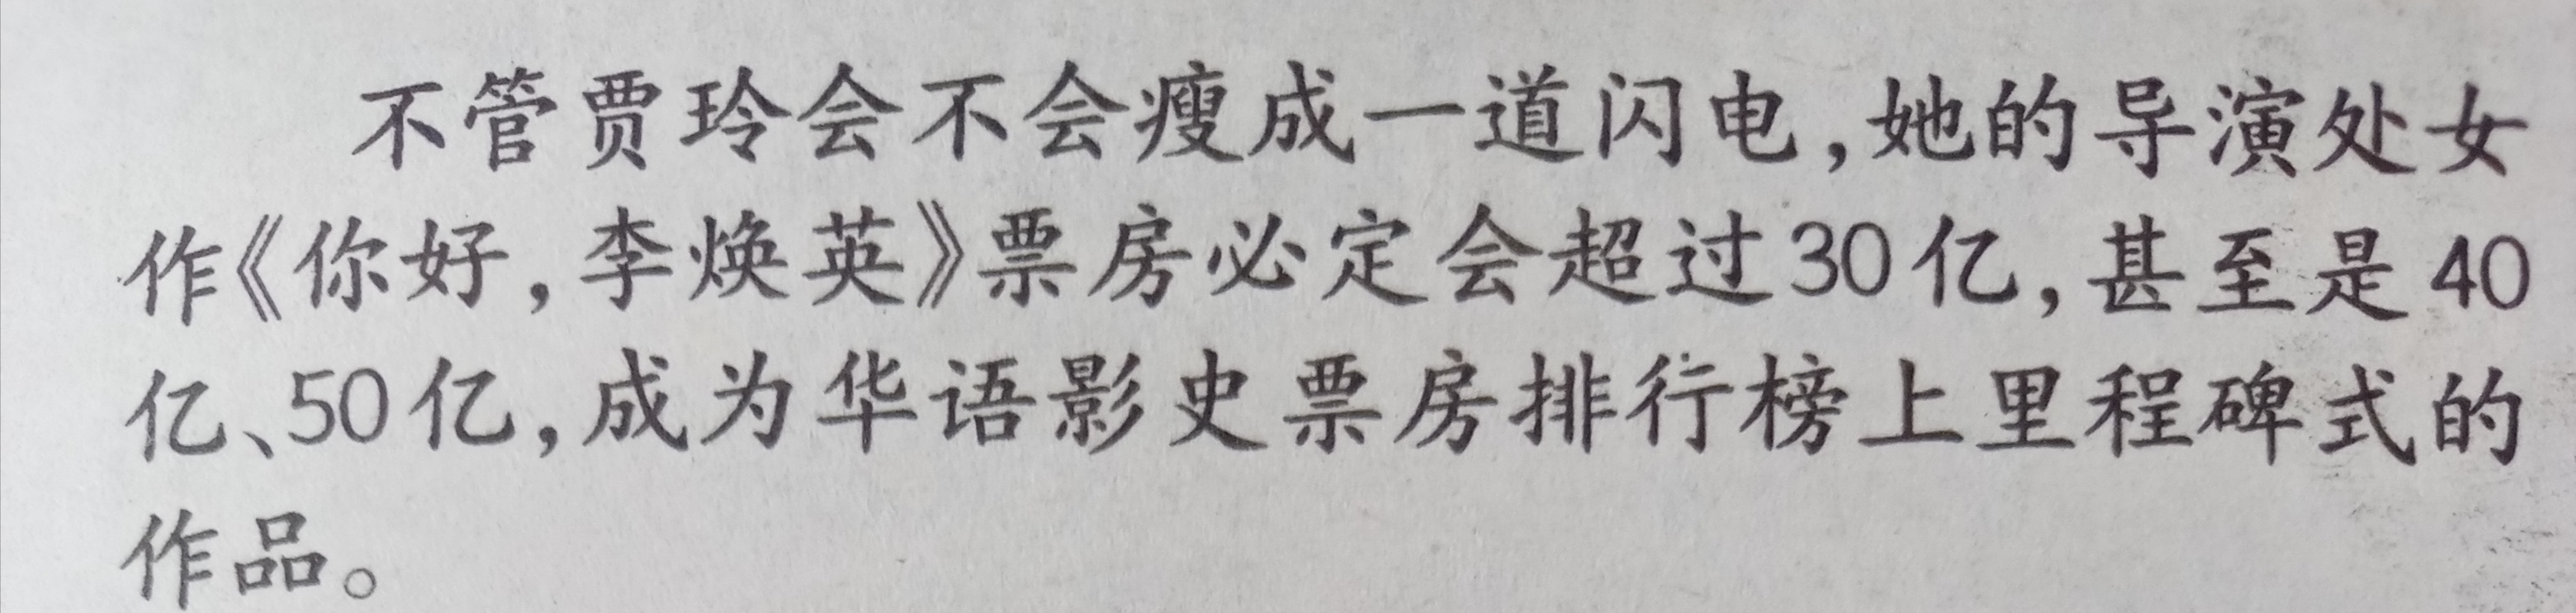 不管贾玲会不会瘦成一道闪电,她的导演处女
作《你好,李焕英》票房必定会超过30亿,甚至是40
亿、50亿,成为华语影史票房排行榜上里程碑式的
作品。